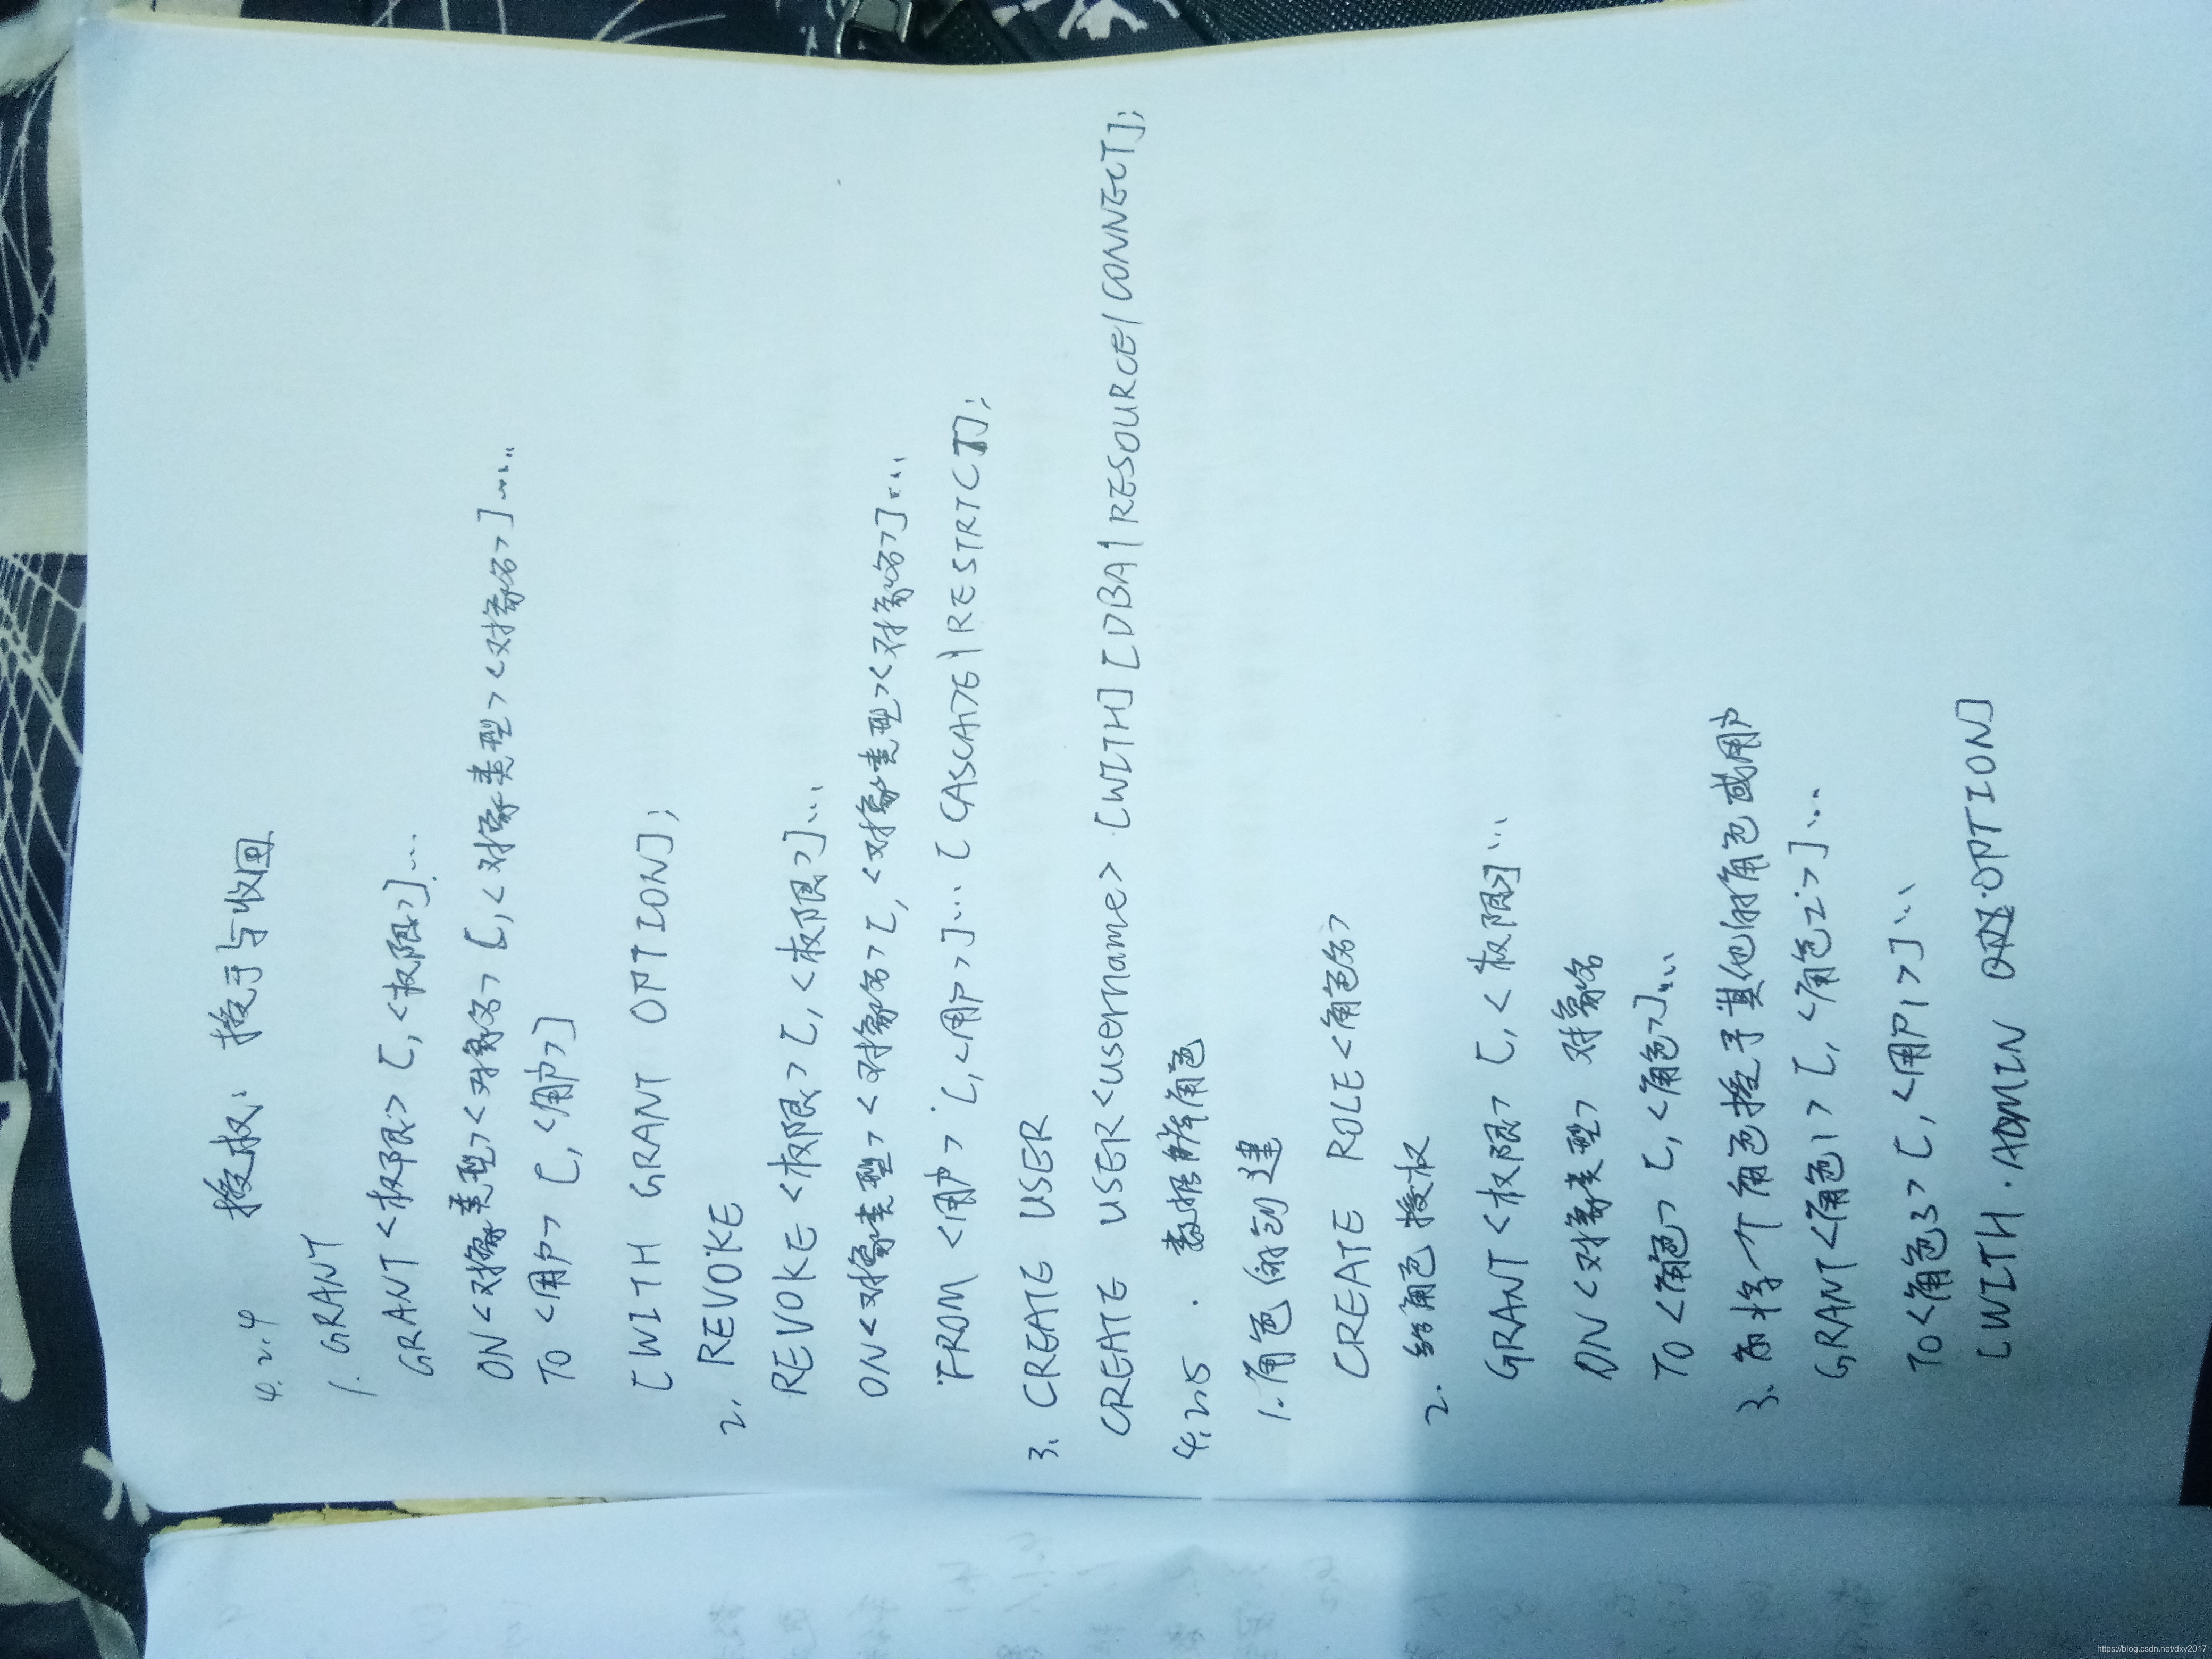 4.2.4 授权：授予与收回
1. GRANT
GRANT <权限> [,<权限>]...
ON <对象类型> <对象名> [,<对象类型> <对象名>]......
TO <用户> [,<用户>]
[WITH GRANT OPTION];
2. REVOKE
REVOKE <权限> [,<权限>]...
ON <对象类型> <对象名> [,<对象类型> <对象名>]...
FROM <用户> [,<用户>]... [CASCADE|RESTRICT];
3. CREATE USER
CREATE USER <username> [WITH] [DBA|RESOURCE|CONNECT];
4.2.5 . 数据库角色
1. 角色的创建
CREATE ROLE <角色名>
2. 给角色授权
GRANT <权限> [,<权限>]...
ON <对象类型> 对象名
TO <角色> [,<角色>]...
3. 将一个角色授予其他的角色或用户
GRANT <角色1> [,<角色2>]...
TO <角色3> [,<用户1>]...
[WITH ADMIN OPTION]
https://blog.csdn.net/dxy2017